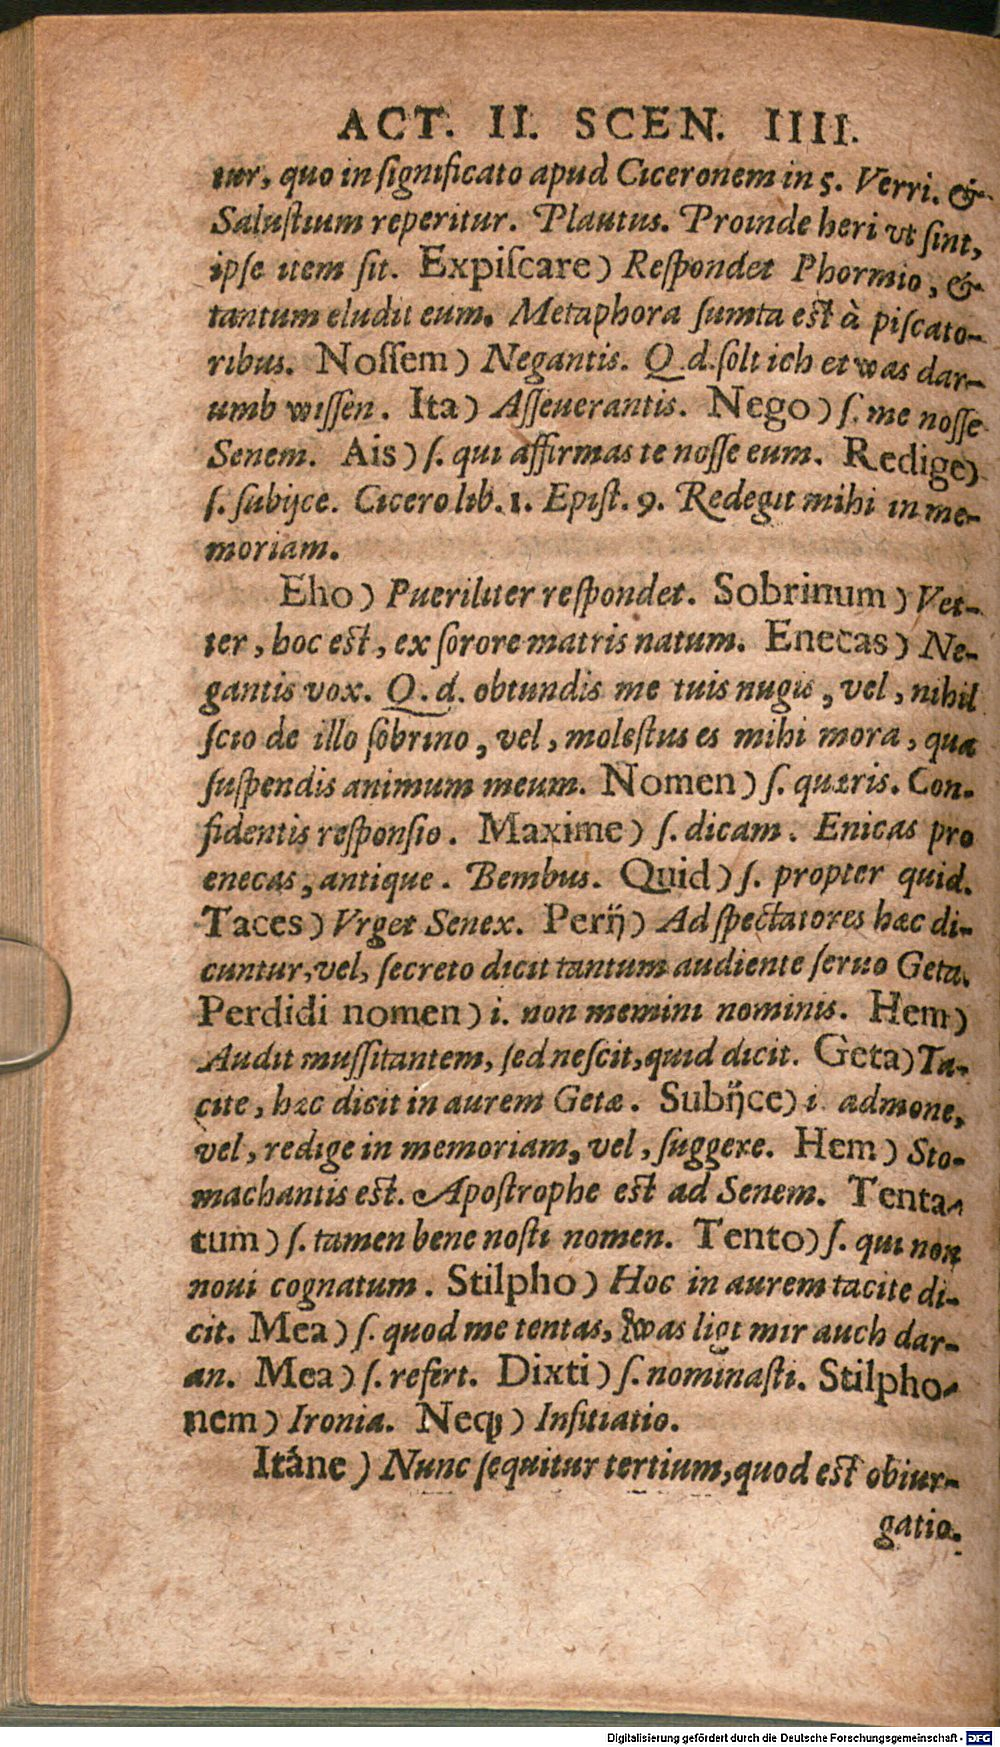 ACT. II. SCEN. IIII.
tur, quo in ſignificato apud Ciceronem in 5. Verri. &
Saluſtium reperitur. Plautus. Proinde heri vt ſint,
ipſe item ſit. Expiſcare) Reſpondet Phormio, &
tantum eludit eum. Metaphora ſumta eſt à piſcato-
ribus. Noſſem) Negantis. Q.d. ſolt ich etwas dar-
umb wiſſen. Ita) Aſſeuerantis. Nego) ſ. me noſſe
Senem. Ais) ſ. qui affirmas te noſſe eum. Redige)
ſ. ſubijce. Cicero lib. 1. Epiſt. 9. Redegit mihi in me-
moriam.
Eho) Pueriliter reſpondet. Sobrinum) Vet-
ter, hoc eſt, ex ſorore matris natum. Enecas) Ne-
gantis vox. Q.d. obtundis me tuis nugis, vel, nihil
ſcio de illo ſobrino, vel, moleſtus es mihi mora, qua
ſuſpendis animum meum. Nomen) ſ. quæris. Con-
fidentis reſponſio. Maxime) ſ. dicam. Enicas pro
enecas, antique. Bembus. Quid) ſ. propter quid.
Taces) Vrget Senex. Perij) Ad ſpectatores hæc di-
cuntur, vel, ſecreto dicit tantum audiente ſeruo Geta.
Perdidi nomen) i. non memini nominis. Hem)
Audit muſſitantem, ſed neſcit, quid dicit. Geta) Ta-
cite, hæc dicit in aurem Getæ. Subijce) i. admone,
vel, redige in memoriam, vel, ſuggere. Hem) Sto-
machantis eſt. Apoſtrophe eſt ad Senem. Tenta-
tum) ſ. tamen bene noſti nomen. Tento) ſ. qui non
noui cognatum. Stilpho) Hoc in aurem tacite di-
cit. Mea) ſ. quod me tentas, was ligt mir auch dar-
an. Mea) ſ. refert. Dixti) ſ. nominaſti. Stilpho-
nem) Ironia. Neq;) Inſitiatio.
Itáne) Nunc ſequitur tertium, quod eſt obiur-
gatio.
Digitalisierung gefördert durch die Deutsche Forschungsgemeinschaft - DFG